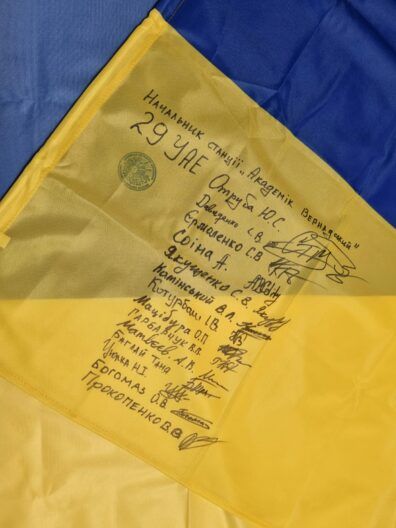 Начальник станції "Академік Вернадський"
29 УАЕ Отруба Ю.С.
Давиденко С.В.
Єрмоленко С.В
Соіна А.
Якушенко С.В.
Камінський В.Л.
Котурбаш І.В.
Мацібура О.П
Гарбальчук В.В.
Матвєєв А.К.
Баглай Таня
Уцька Н.І.
Богомаз О.В.
Прокопенко В.В